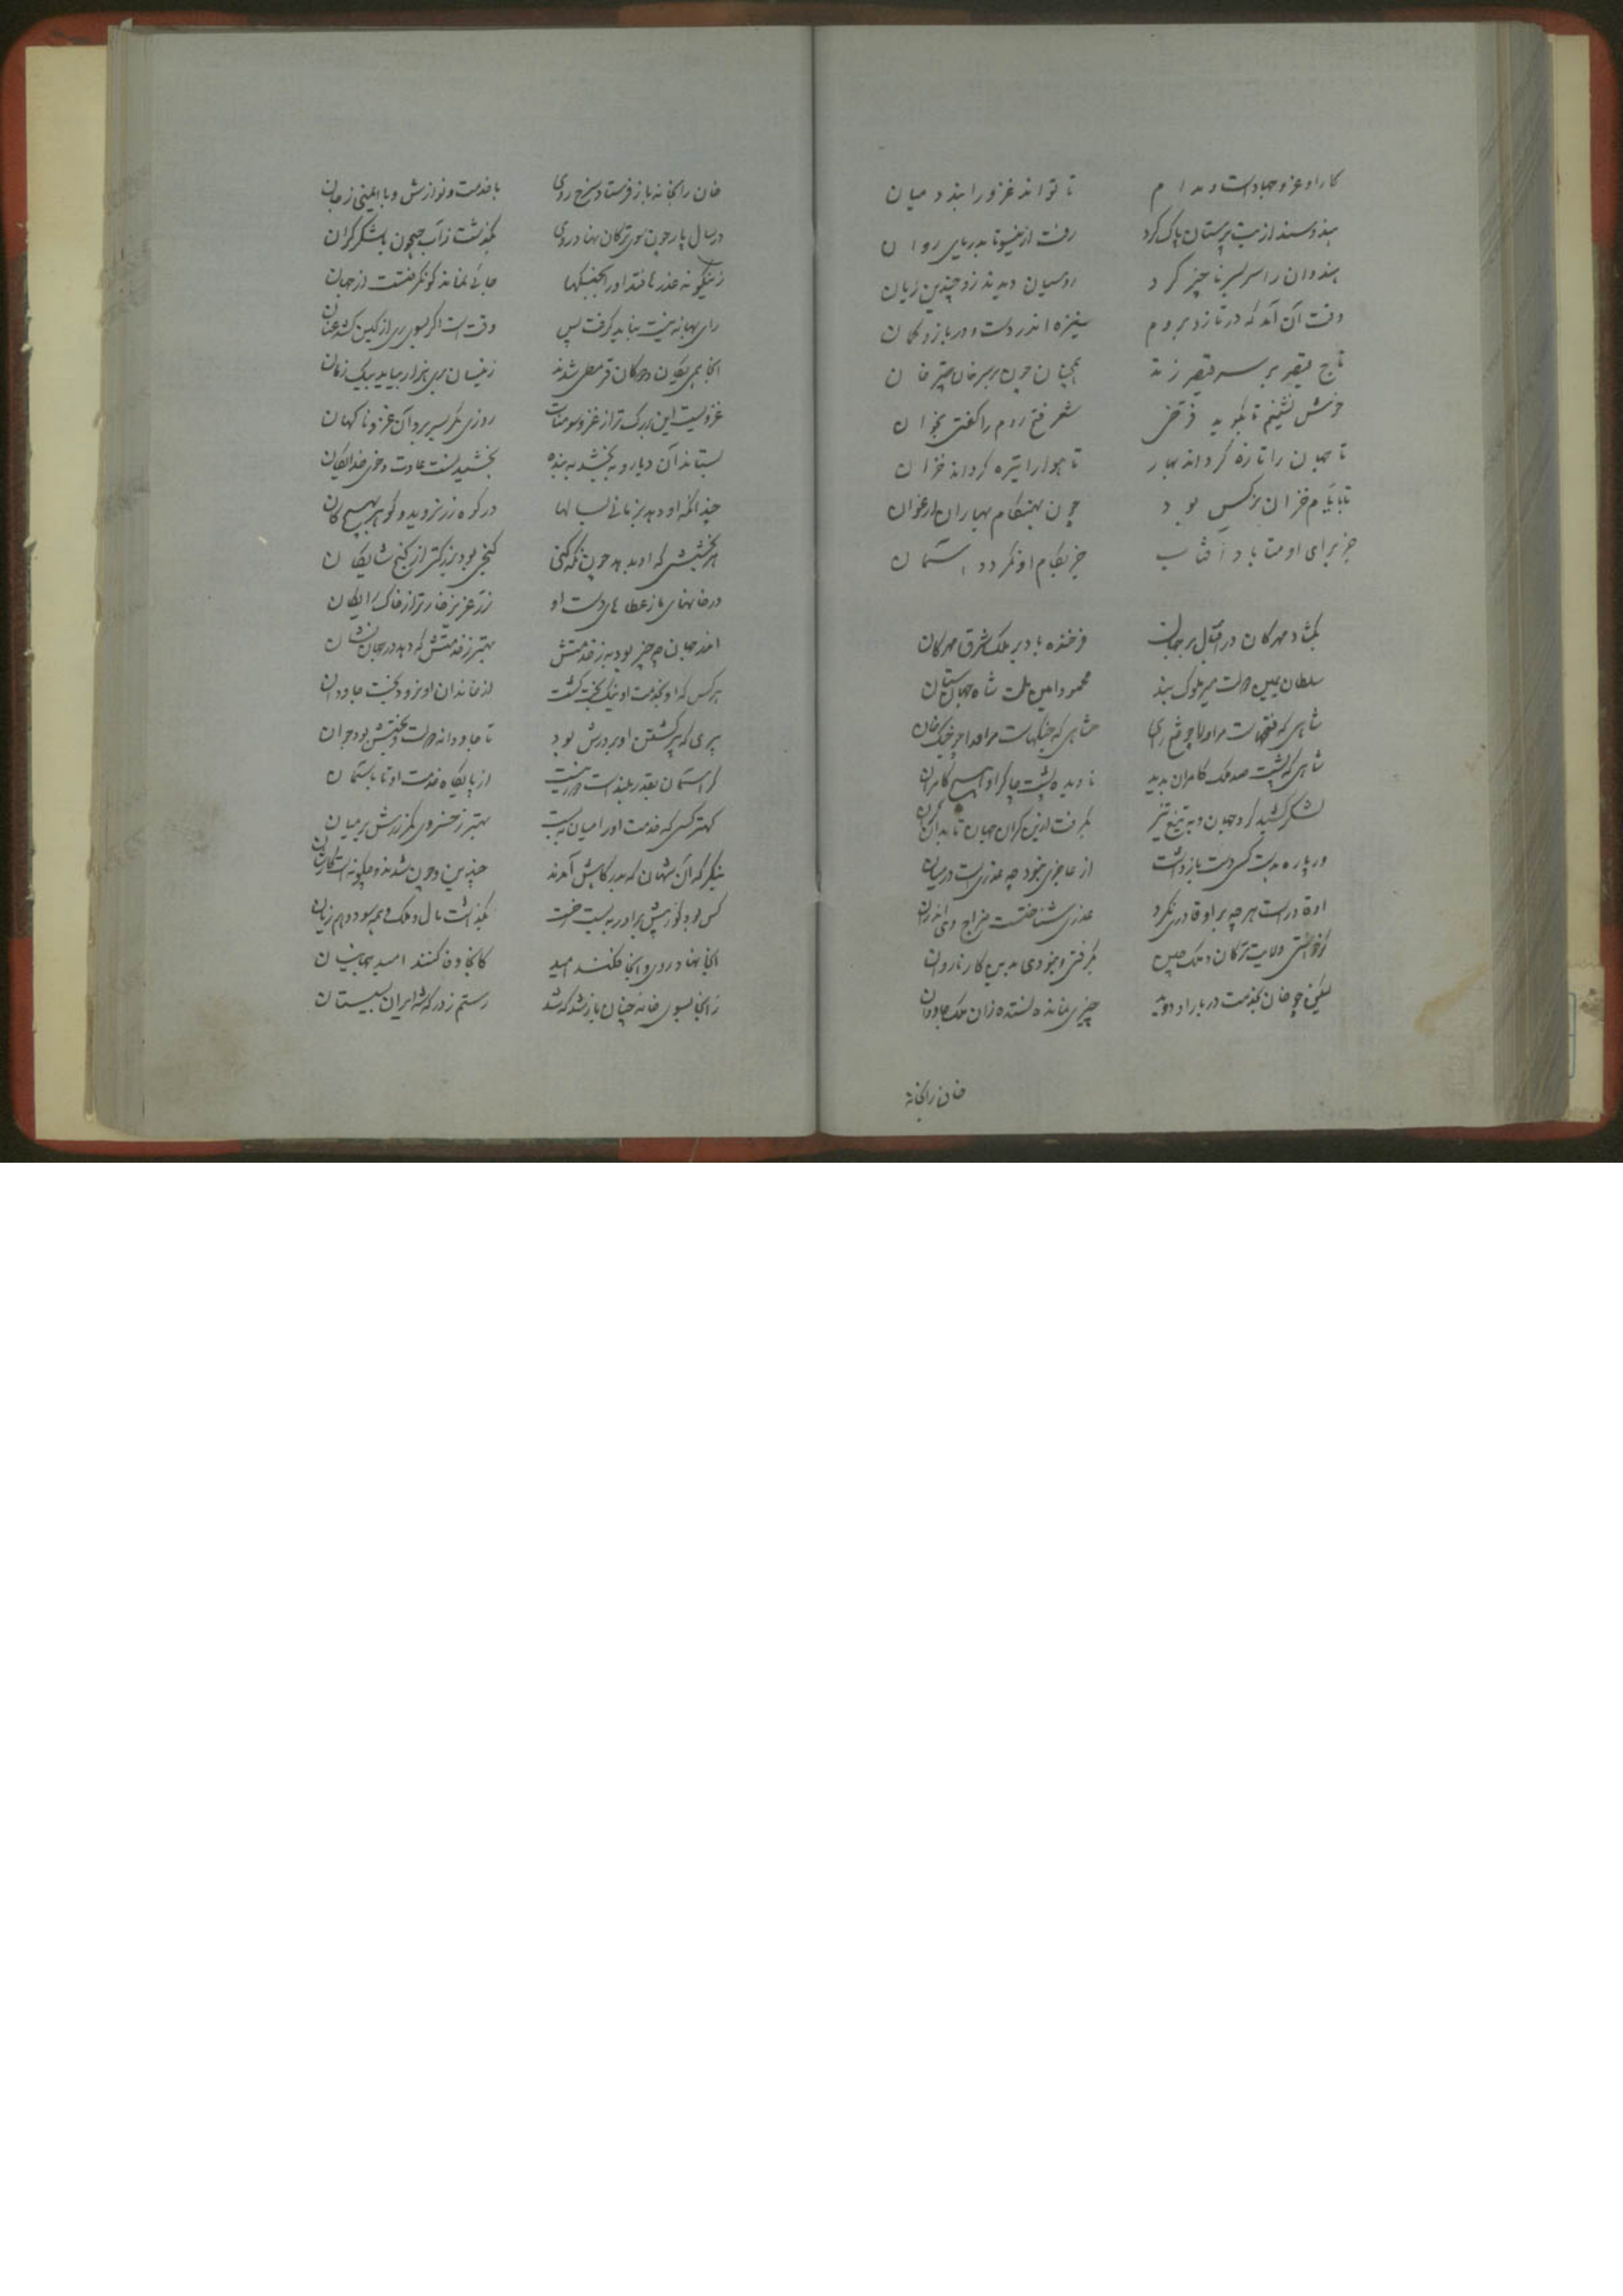 کار او غزو و جهادست و مدام تا تواند غزو را بندد میان
هند و سند از بت پرستان پاک کرد رفت ازینسو تا بدریای روان
هندوان را سر بسر ناچیز کرد روسیان دیدند زو چندین زیان
وقت آن آمد که در تازد بروم نیزه اندر دست و در بازو کمان
تاج قیصر بر سر قیصر زند همچنان چون بر سر خان چتر خان
خوش نشینم تا بگوید فرخی شعر فتح روم را گفتی بخوان
تا جهان را تازه گرداند بهار تا هوا را تیره گرداند خزان
تا بایام خزان نرگس بود چون بهنگام بهاران ارغوان
جز برای او متاباد آفتاب جز بکام او مگردد آسمان
بگشاد مهرگان در اقبال بر جهان فرخنده باد بر ملک شرق مهرگان
سلطان یمین دولت میر ملوک بند محمود امین ملت شاه جهان ستان
شاهی که فتحهاست مر او را چو فتح ری شاهی که جنگهاست مر او را چو جنگ خان
شاهی که پشت صد ملک کامران بدید نادیده پشت چاکر او هیچ کامران
لشکر کشید گرد جهان و به تیغ تیز بگرفت ازین کران جهان تا بدان کران
در پاره بدست کسی دست باز داشت از عاجزی نبود چه عذریست در میان
او قادرست هر چه بر او قادری نکرد عذری شناختست مزاج وی اندران
گر خواستی ولایت ترکان و ملک چین بگرفتی و نبودی بدین کار ناروان
لیکن چو خان بخدمت دربار او دوید چیزی نمانده نستده زان ملک جاودان
خان را بخانه
خان را بخانه باز فرستاد سرخ روی با خدمت و نوازش و با ایمنی ز جان
در سال پار چون سوی ترکان نهاد روی بگذشت زآب جیحون با لشکر گران
زینگونه عذرها فتد او را بجنگها جائی نماند کو نگرفتست از جهان
رای بهانه نیست بباید گرفت پس وقت است اگر بسوی ری از کین کشد عنان
اینجا همی یگان و دوگان قرمطی شدند زینسان به ری هزار بیابد بیک زمان
غزویست این بزرگتر از غزو سومنات روزی مگر بسر برد آن غزو ناگهان
بستاند آن دیار و ببخشد به بنده بخشیدنست عادت و خوی خدایگان
چندانکه او دهد بزمانی بسالها در کوه زر نروید و گوهر بهیچ کان
هر بخششی که او بدهد چون نگه کنی گنجی بود بزرگتر از گنج شایگان
در خانهای ما ز عطاهای دست او زر عزیز خوارتر از خاک رایگان
اندر جهان چه چیز بود به ز خدمتش بهتر ز خدمتش که دهد در جهان نشان
هر کس که او بخدمت او نیکبخت گشت از خاندان او نرود بخت جاودان
پیری که پیر گشتن او بر درش بود تا جاودانه دولت و بختش بود جوان
گر آسمان بقدر بلند است دور نیست از پایگاه خدمت او تا بآسمان
کهتر کسی که خدمت او را میان ببست بهتر ز خسروی کمر زرش بر میان
بنگر که آن شهان که بدرگاهش آمدند چندین و چون شدند و چگونه است کارشان
کس بود کو ز پیش برادر به بست رخت بگذاشت مال و ملک و همه سود و هم زیان
اینجا نهاد روی و اینجا فکند امید کاینجا وفا کنند امید جهانیان
زاینجا بسوی خانه چنان باز شد که شد رستم ز درگه شه ایران بسیستان